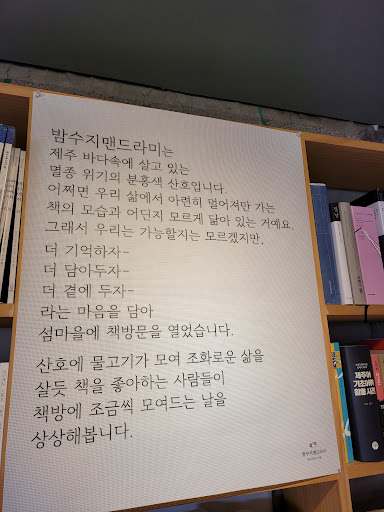 밤수지맨드라미는
제주 바다속에 살고 있는
멸종 위기의 분홍색 산호입니다.
어쩌면 우리 삶에서 아련히 멀어져만 가는
책의 모습과 어딘지 모르게 닮아 있는 거예요.
그래서 우리는 가능할지는 모르겠지만,
더 기억하자-
더 담아두자-
더 곁에 두자-
라는 마음을 담아
섬마을에 책방문을 열었습니다.
산호에 물고기가 모여 조화로운 삶을
살듯 책을 좋아하는 사람들이
책방에 조금씩 모여드는 날을
상상해봅니다.
밤수지맨드라미
제주어
기초어휘
활용 사전